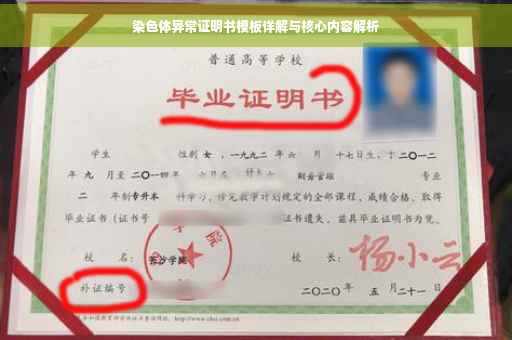 染色体异常证明书模板详解与核心内容解析
普通高等学校
毕业证明书
学生 性别 女，一九九二年 六 月 十七日生，于二〇一二
年 九 月至 二〇一四年 六月在 财务管理 专业
二 年制 专升本 科学习，修完教学计划规定的全部课程，成绩合格，取得
毕业证书（证书号 证书遗失，兹具毕业证明书为凭。
校 名：长沙学院 校 长：杨小云
补证编号 二〇二〇年 五 月 二十一 日
http://www.chsi.com.cn